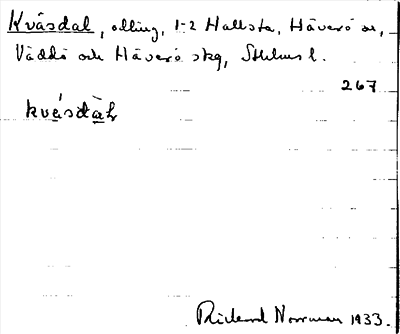 Kvásdal, odling, 1-2 Hallsta, Häverö sn,
Väddö och Häverö skg, Sthlms l.
267
kvásdàl
Rickard Norrman 1933.